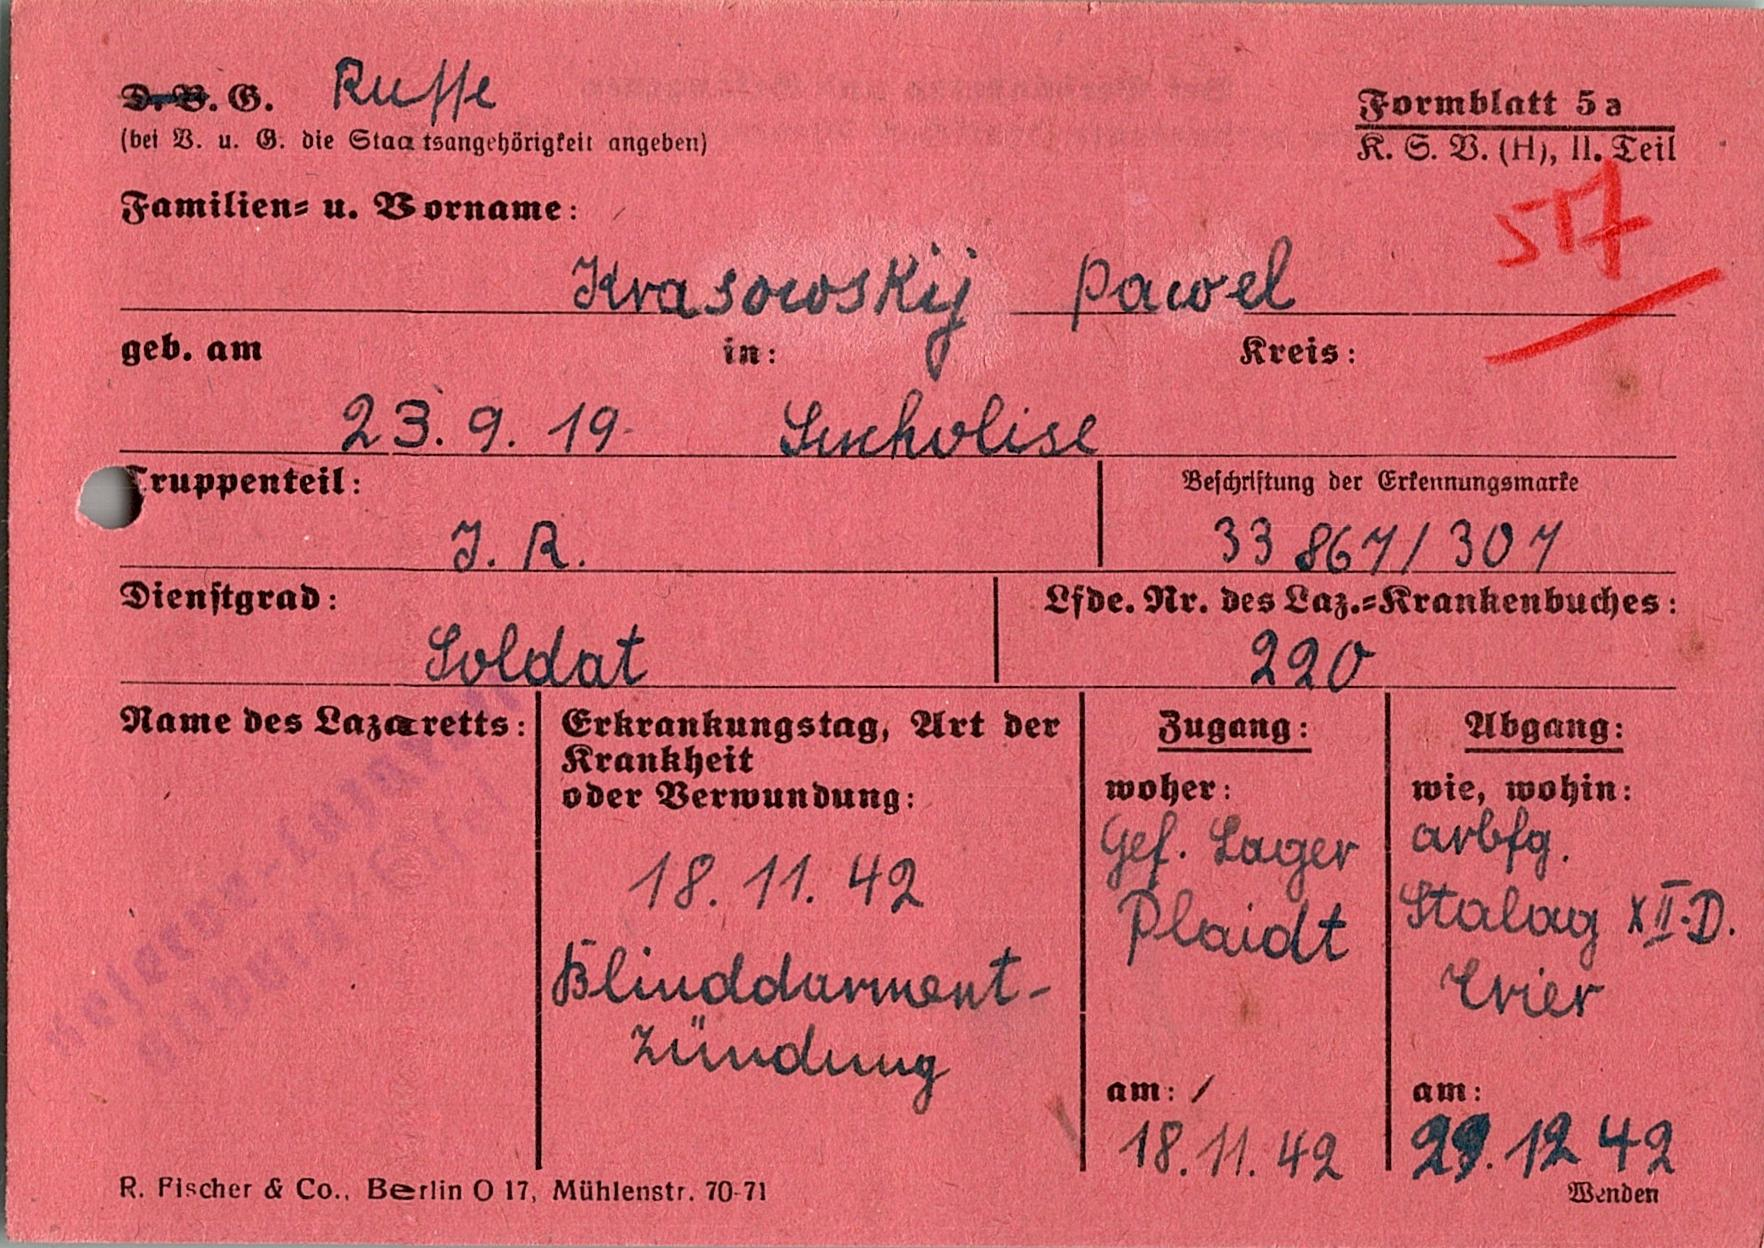 D. V. G. Russe
(bei V. u. G. die Staatsangehörigkeit angeben)
Formblatt 5a
K. S. V. (H), II. Teil
517
Familien= u. Vorname:
Krasowskij Pawel
geb. am in: Kreis:
23. 9. 19
Truppenteil:
Beschriftung der Erkennungsmarke
J. R.
33 867/307
Dienstgrad:
Lfde. Nr. des Laz.=Krankenbuches:
Soldat
220
Name des Lazaretts:
Reserve-Lazarett
Erkrankungstag, Art der
Krankheit
oder Verwundung:
18. 11. 42
Blinddarment-
zündung
Zugang:
woher:
Gef. Lager
Plaidt
am:
18. 11. 42
Abgang:
wie, wohin:
arbfg.
Stalag XII-D.
Trier
am:
29. 12 42
R. Fischer & Co., Berlin O 17, Mühlenstr. 70-71
Wenden